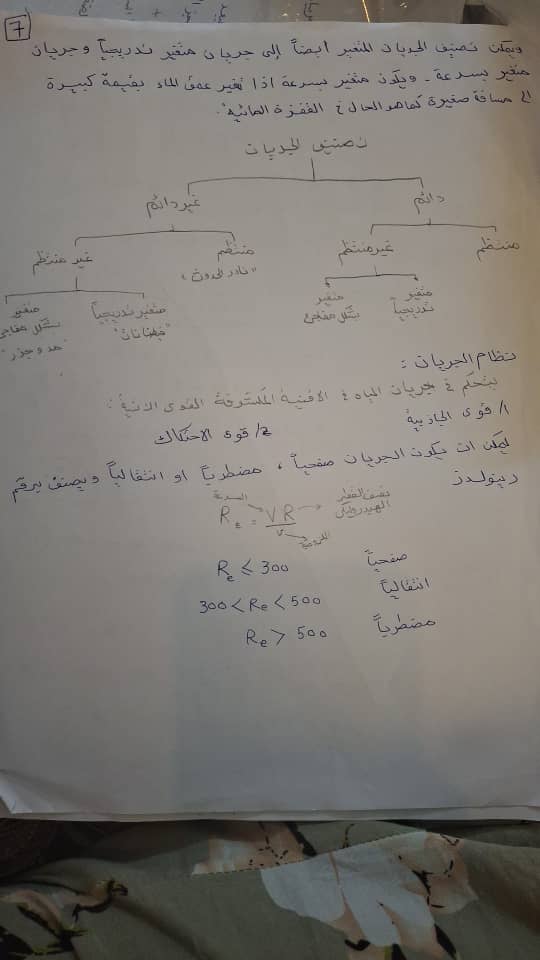 7
ويمكن تصنيف الجريان المتغير ايضاً إلى جريان متغير تدريجياً وجريان
متغير بسرعة. ويكون متغير بسرعة اذا تغير عمق الماء بقيمة كبيرة
في مسافة صغيرة كما هو الحال في القفزة المائية.
تصنيف الجريان
دائم
غير دائم
منتظم
غير منتظم
منتظم
"نادر الحدوث"
غير منتظم
متغير تدريجياً
متغير بشكل مفاجئ
متغير تدريجياً
"فيضانات"
متغير بشكل مفاجئ
"مد وجزر"
نظام الجريان:
يتحكم في جريان المياه في الاقنية المكشوفة القوى الاتية:
1/ قوى الجاذبية
2/ قوى الاحتكاك
يمكن ان يكون الجريان صفحياً، مضطرباً او انتقالياً ويصنف برقم
رينولدز
Re = VR / ν
السرعة
نصف القطر الهيدروليكي
اللزوجة
صفحياً Re ≤ 300
انتقالياً 300 < Re < 500
مضطرباً Re > 500